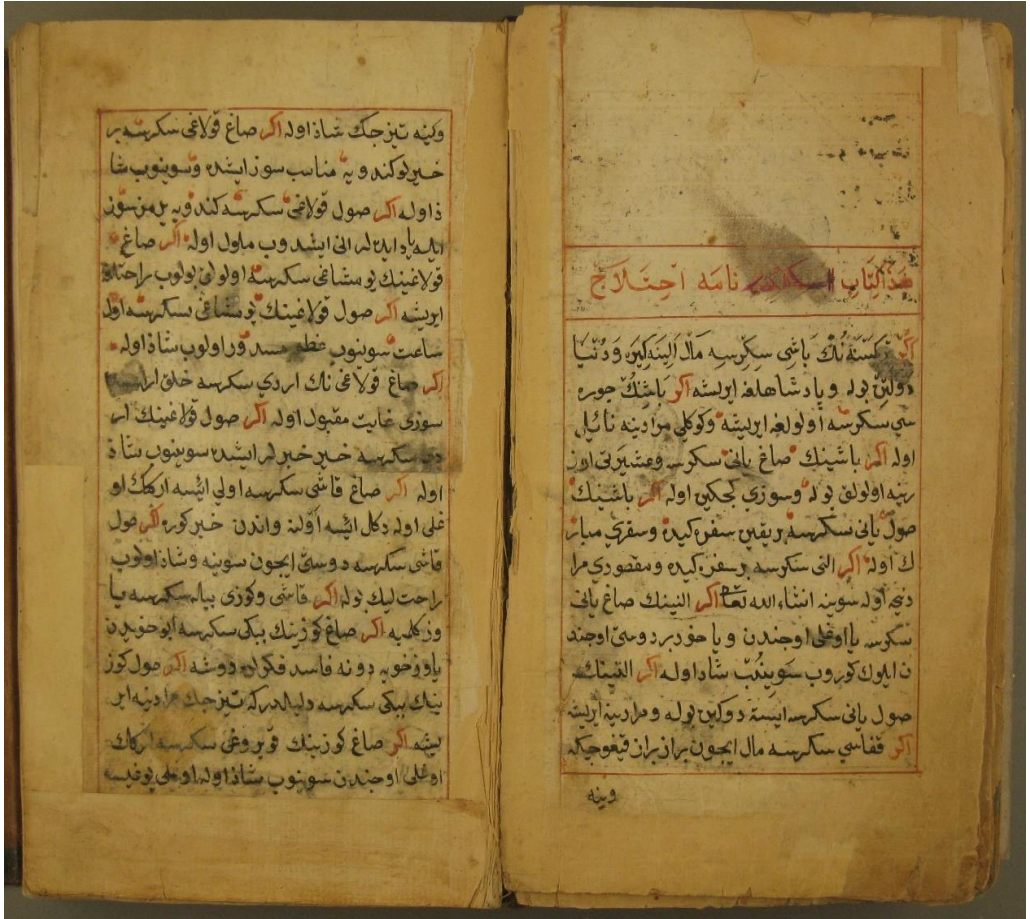 هذا الكتاب اسكندر نامه احتلاج
اكر كمسنه نُنك باشی سكرسه مال الینه كیره ودنیا
دولتن بوله وپادشاهلغه ایریشه اكر باشنك جوره
سی سكرسه أولولغه ایریشه وكوكلی مرادینه نائل
اوله اكر باشینك صاغ یانی سكرسه وعشیرتی اوز
رینه اولولق بوله وسوزی كجكین اوله اكر باشینك
صول یانی سكرسه بر یقین سفره كیده وسفری مبار
ك أوله اكر النی سكرسه بر سفره كیده ومقصودی مرا
دنجه أوله سوینه انشاء الله تعا اكر النینك صاغ یانی
سكرسه یا اوغلی اوجندن ویا خود بر دوستی اوجند
ن ایلوك كوروب سَویِنُبْ شاد اوله اكر النینك
صول یانی سكرسه ایسته دوكین بوله ومرادینه ایریشه
اكر قفاسی سكرسه مال ایجون بران بران قیغوجكه
وینه
وكینه تیزجك شاذ اوله اكر صاغ قولاغی سكرسه بر
خبر كوكندویه مناسب سوز ایشده وسوینوب شا
ذ اوله اكر صول قولاغی سكرسه كندویه یلمن سوز
ایله یاد ایده لر انی ایشدوب ملول اوله اكر صاغ
قولاغینك یومشاغی سكرسه اولولق بولوب راحته
ایریشه اكر صول قولاغینك یومشاغی سكرسه اول
ساعت سوینوب مسرور اولوب شاذ اوله
اكر صاغ قولاغی نك اردی سكرسه خلق اراسنده
سوزی غایت مقبول اوله اكر صول قولاغینك ار
دی سكرسه خیر خبرلر ایشده سوینوب شاذ
اوله اكر صاغ قاشی سكرسه اولی ایسه اركك او
غلی اوله دكل ایسه أوَلنه واندن خیر كوره اكر صول
قاشی سكرسه دوستی ایجون سوینه وشاذ اولوب
راحت لیك بوله اكر قاشی وكوزی بیله سكرسه یا
وز كلمیه اكر صاغ كوزینك ببكی سكرسه ایو خویدن
یاوز خویه دونه فاسد فكرلره دوشه اكر صول كوز
ینك ببكی سكرسه دلیلدركه تیزجك مرادینه ایر
یشه اكر صاغ كوزینك قویروغی سكرسه اركك
اوغلی اوجندن سوینوب شاذ اوله اوغلی یوغیسه